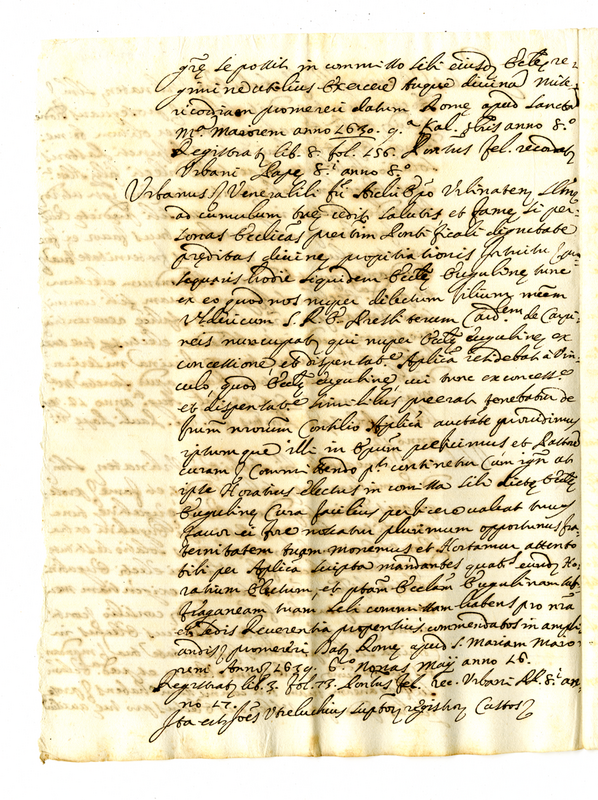 gre se possit in commisso sibi eiusd. Eccle re-
gimine utilius exercere tuque divina mise
ricordiam promereri datum Rome apud Sanctam
M.ᵃ Maiorem anno 1630. 9.ᵃ Kal. anno 8.º
Registrat. lib. 8. fol. 156. Pontus fel. record.
Urbani Pape 8.ⁱ anno 8.º
Urbanus Venerabili fri Archiepō Urbinaten. Slm̃
ad cumulum tue cedit salutis et fame si per-
sonas Ecclicas presertim Pontificali dignitate
preditas divine propitiationis intuitu
sequaris hodie siquidem Eccle Eugubine tunc
ex eo quod nos nuper dilectum filium nrum
Uldericum S. R. E. Presbiterum Card.em de Carpi-
neis nuncupat. qui nuper Eccle Eugubine ex
concessione et dispensat.e Aplica
culo quod Eccle eugubine cui tunc ex concess.e
et dispensat.e similibus preerat tenebatur de
frum nrorum Consilio Aplica auctate providimus
ipsumque illi in Epum prefecimus et Pastorem
curam Committendo pt. continetur Cum ign. at
ipse Horatius electus in comissa sibi dicte Eccle
Eugubine Cura facilius perficere valeat tuus
favor ei fore noscatur plurimum opportunus fra
ternitatem tuam monemus et Hortamur attente
tibi per Aplica scripta mandantes quat. eund. Ho
ratium Electum, et ptam Ecclam Eugubinam suf-
fraganeam tuam sibi commissam habens pro nra
et Sedis Reverentia propensius commendatos in ampli
andis promereri Dat. Rome apud S. Mariam Maio
rem Anno 1639. 6.º nonas Maij anno 16.
Registrat. lib. 3. fol. 73. Pontus fel. rec. Urbani PP. 8.ⁱ an-
no 17.
Ita est Joes registror. Custos